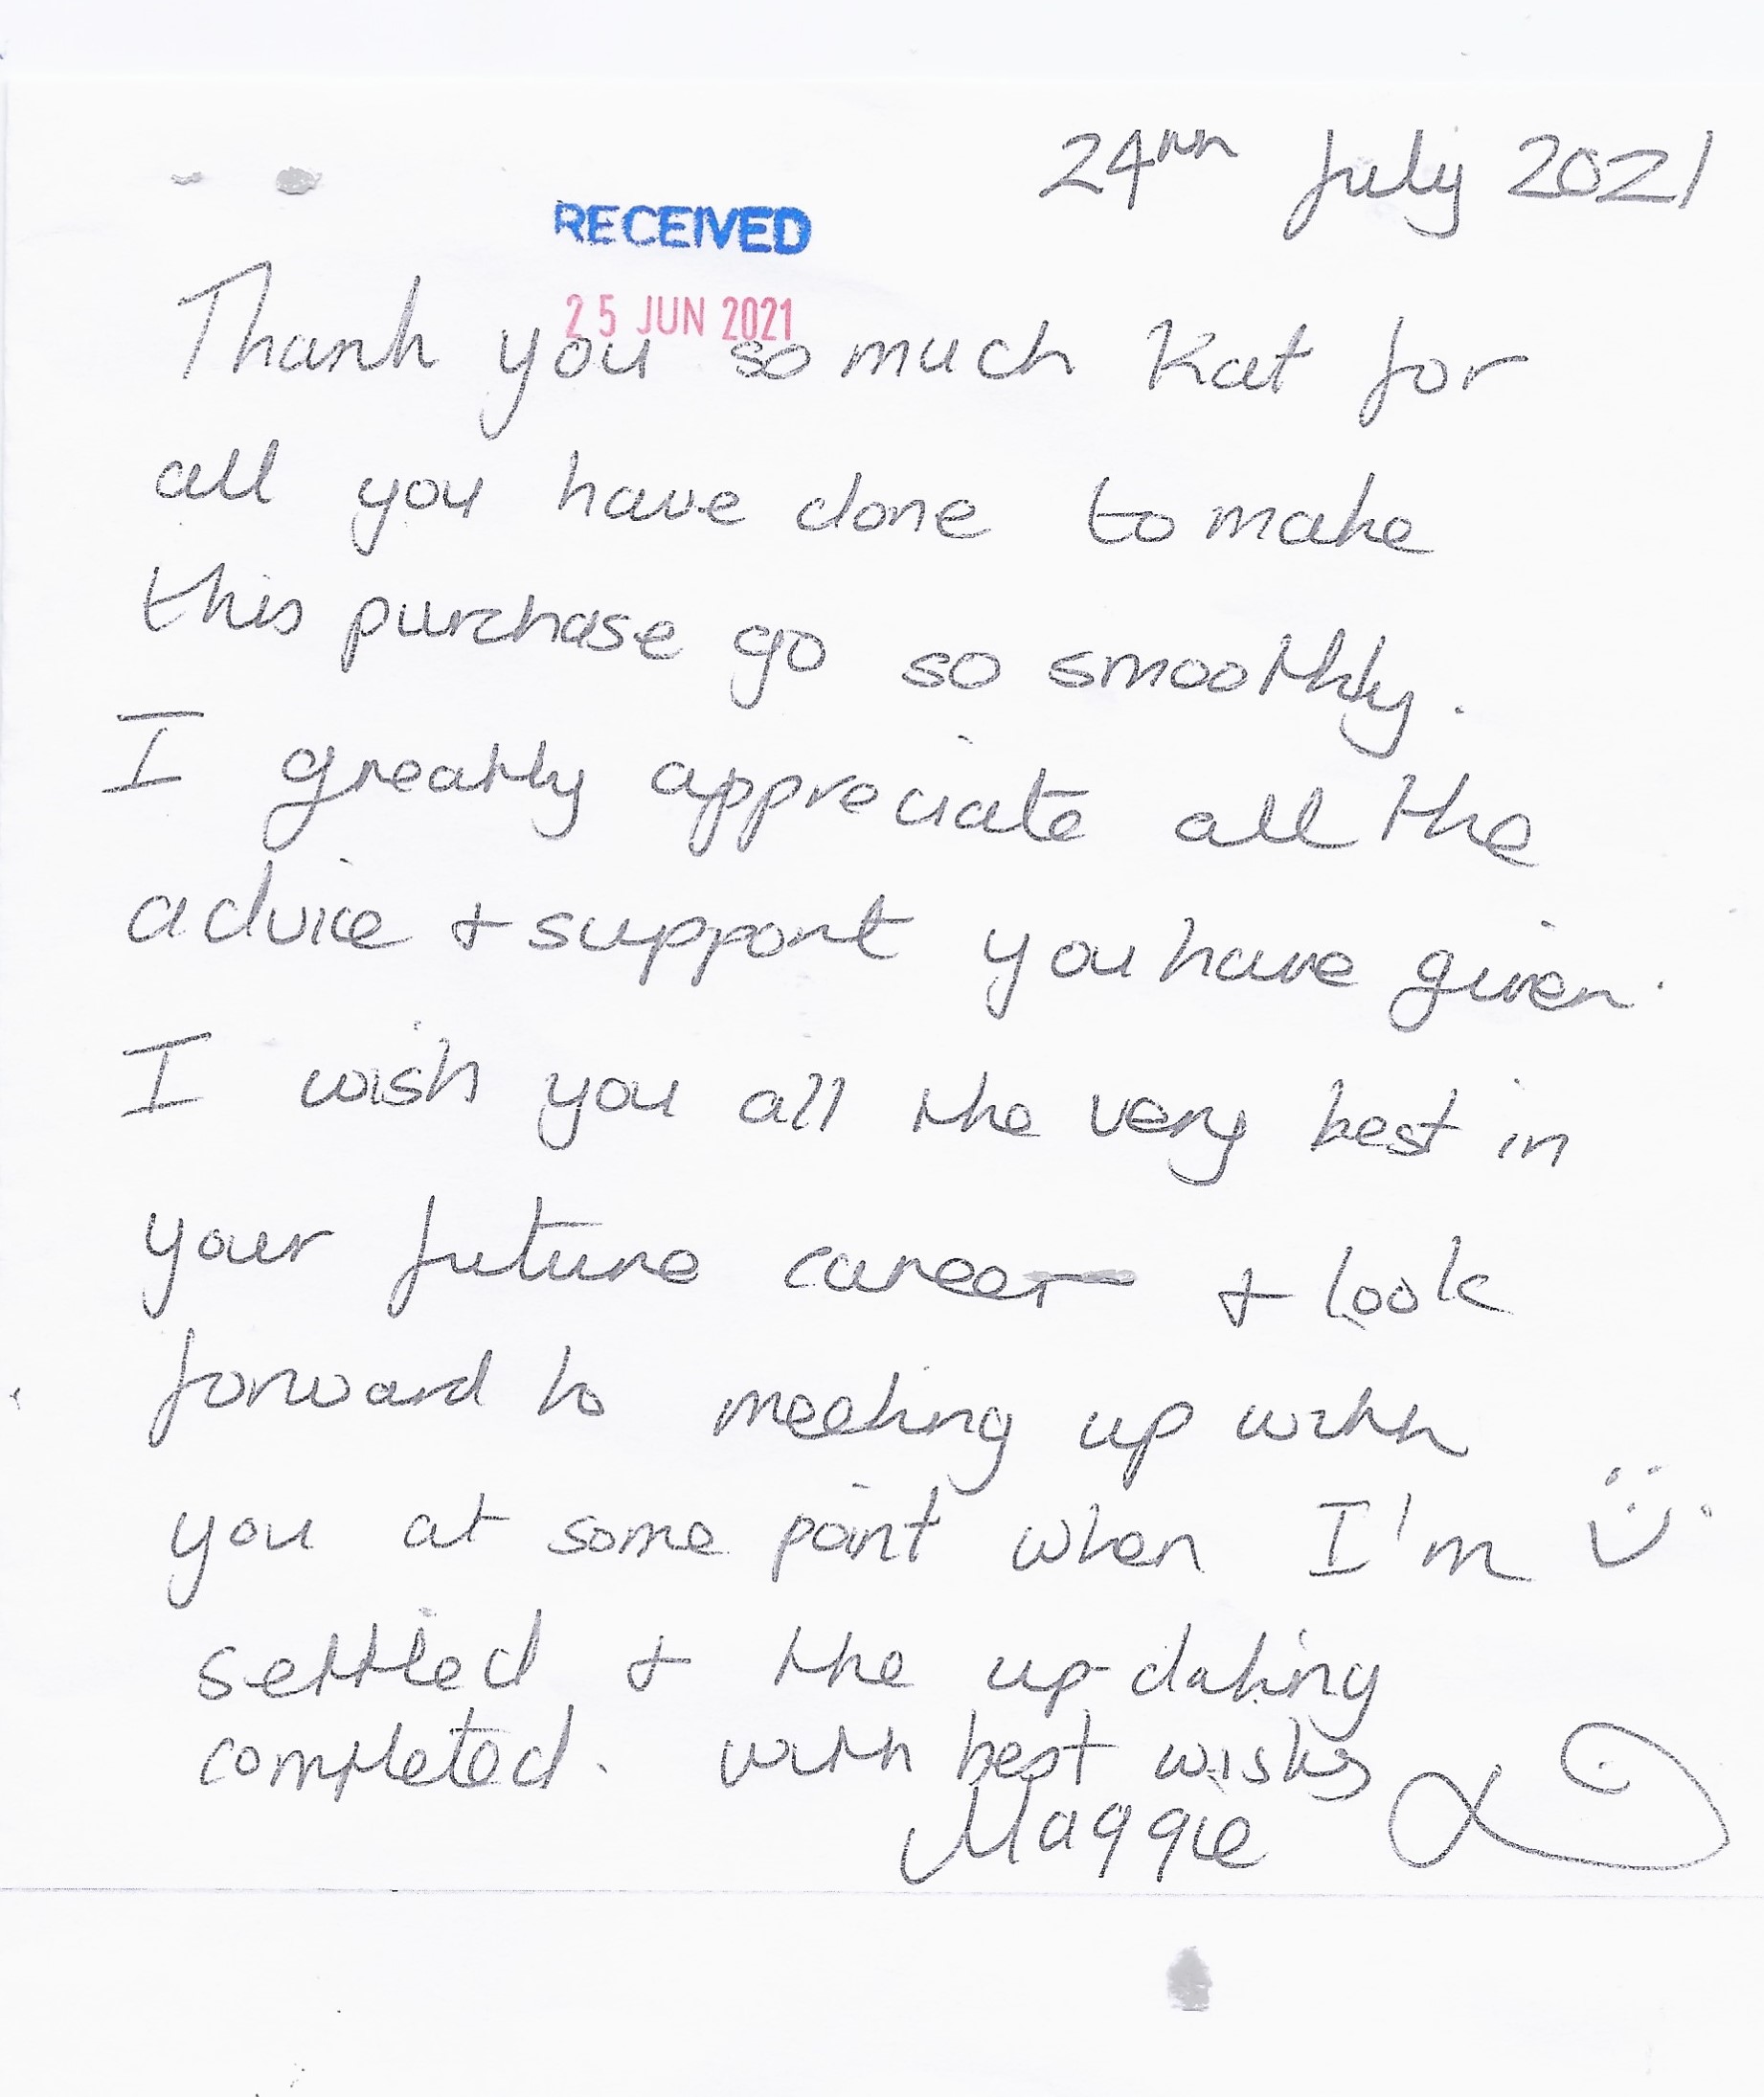 24th July 2021
RECEIVED
25 JUN 2021
Thank you so much Kat for
all you have done to make
this purchase go so smoothly.
I greatly appreciate all the
advice + support you have given.
I wish you all the very best in
your future career + look
forward to meeting up with
you at some point when I'm
settled + the up-dating
completed. With best wishes
Maggie